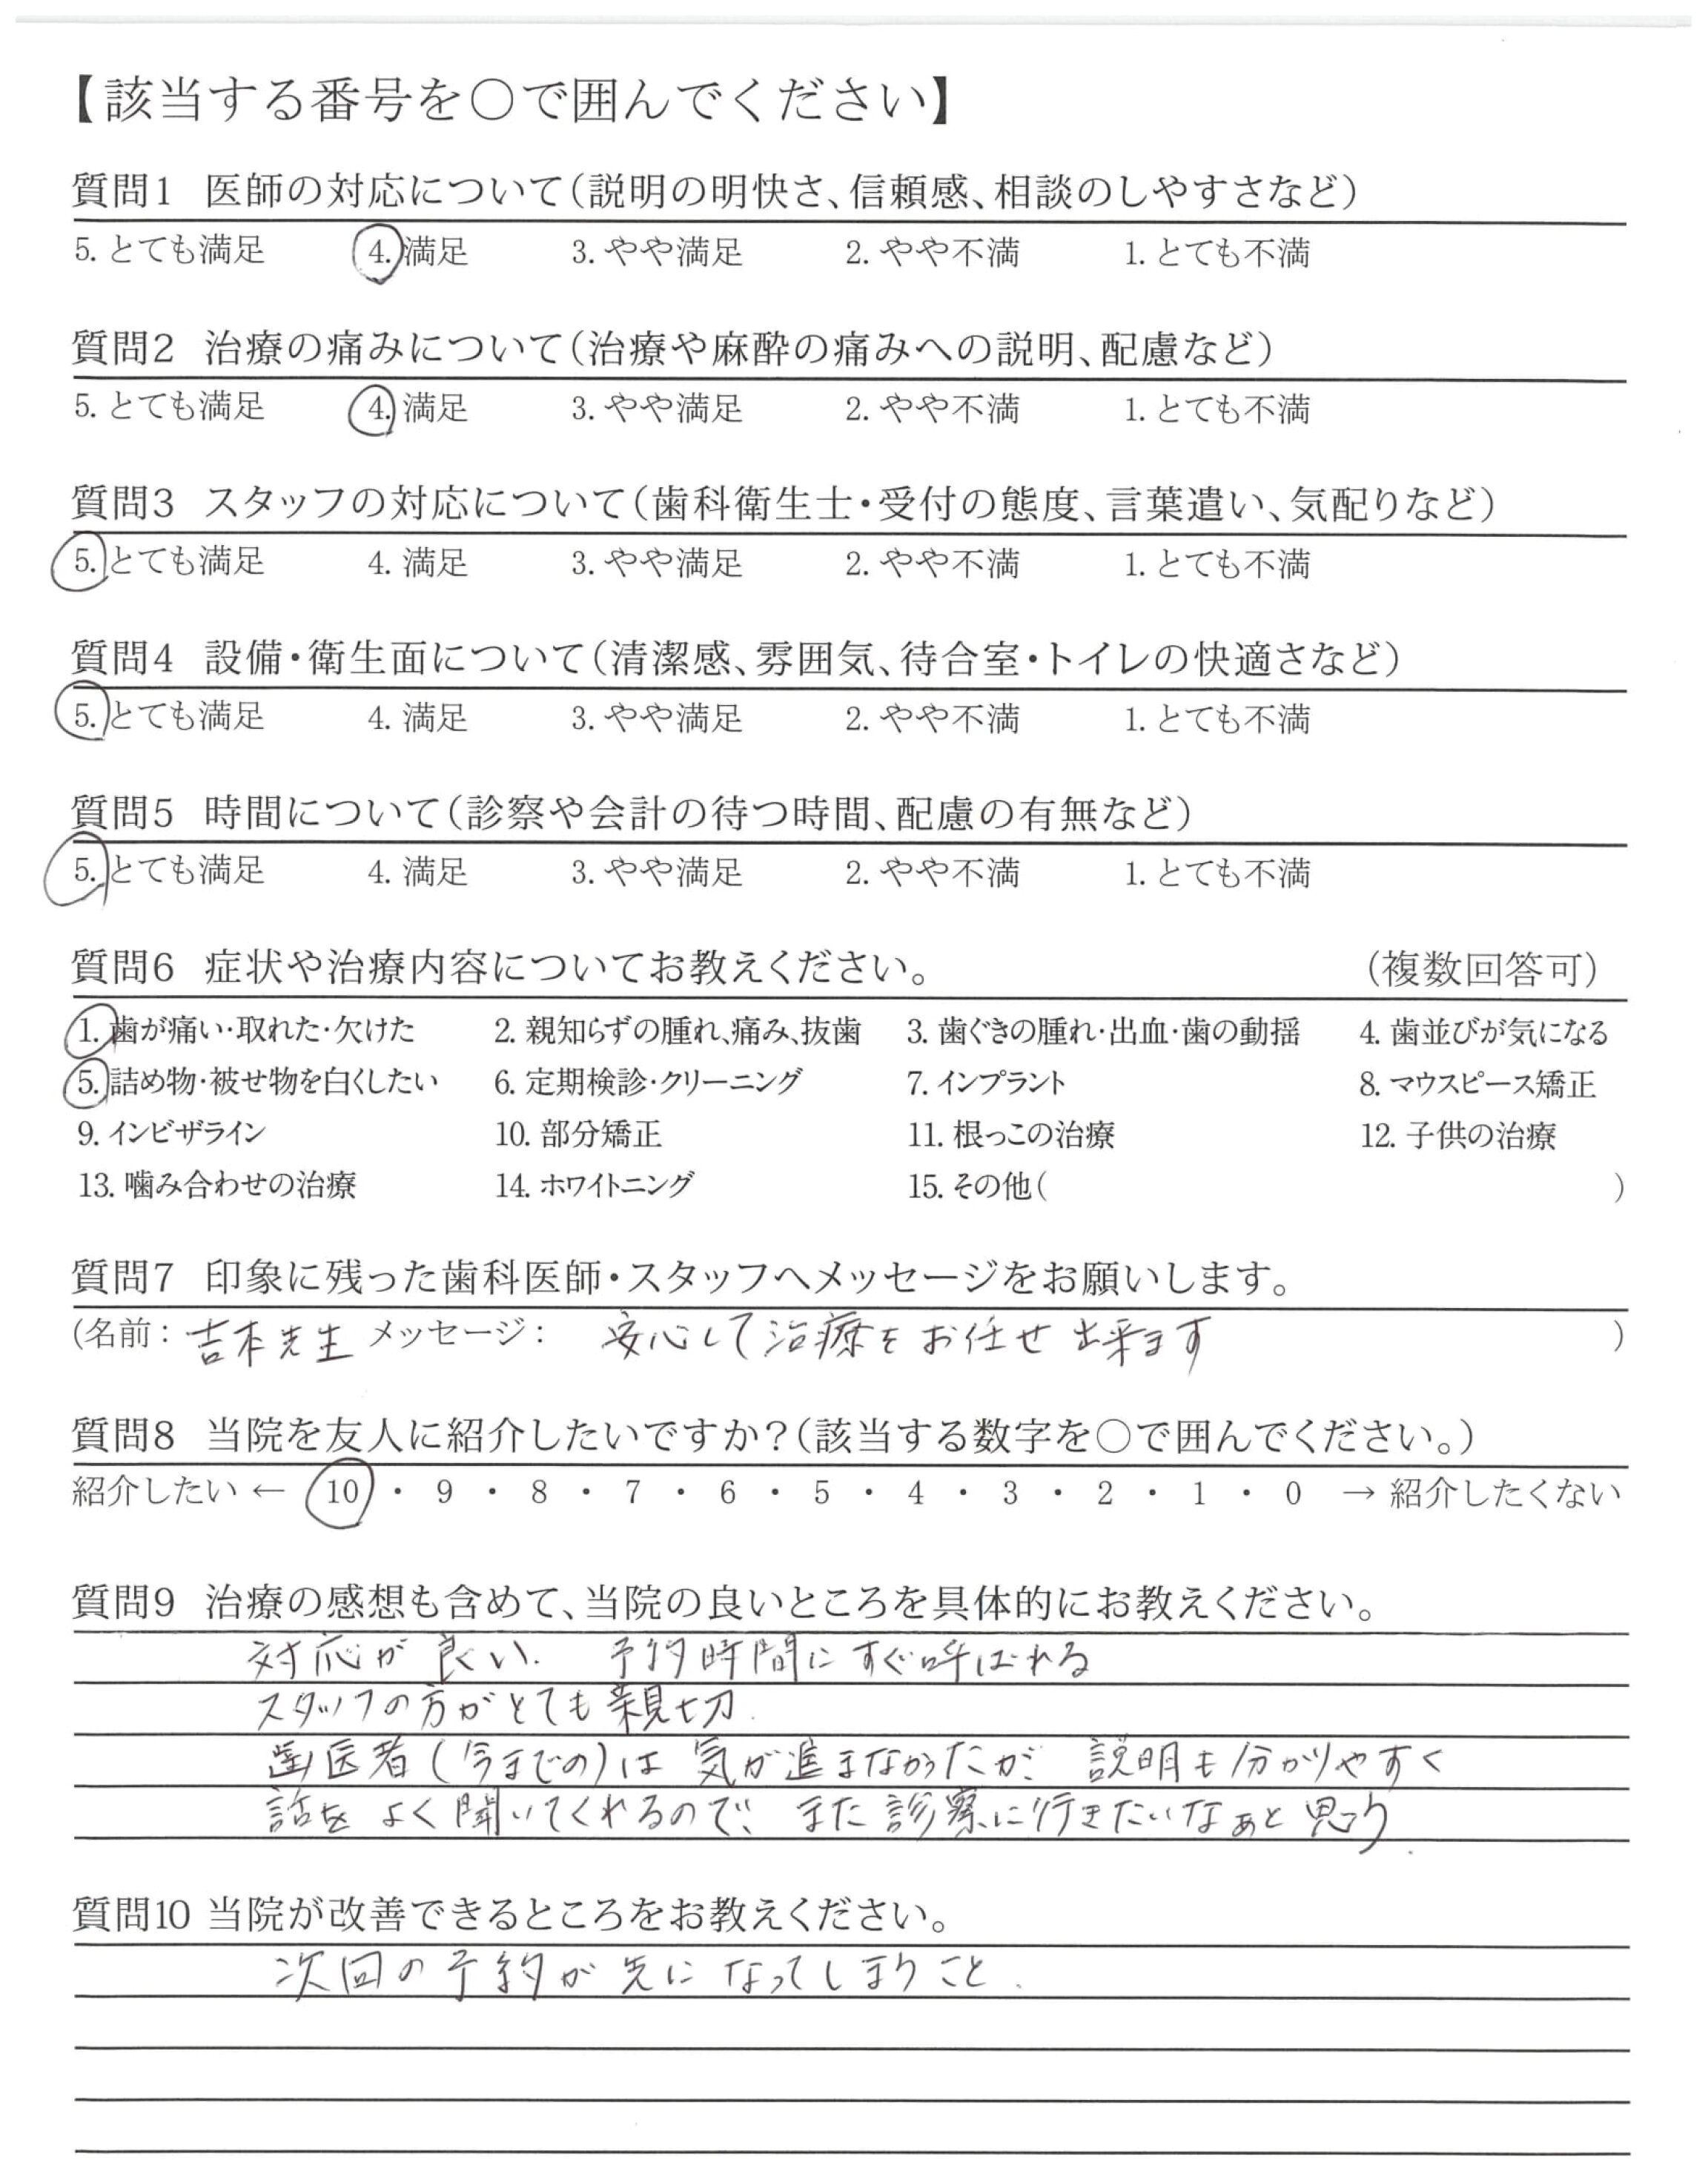 【該当する番号を〇で囲んでください】
質問1 医師の対応について(説明の明快さ、信頼感、相談のしやすさなど)
5. とても満足 4. 満足 3. やや満足 2. やや不満 1. とても不満
質問2 治療の痛みについて(治療や麻酔の痛みへの説明、配慮など)
5. とても満足 4. 満足 3. やや満足 2. やや不満 1. とても不満
質問3 スタッフの対応について(歯科衛生士・受付の態度、言葉遣い、気配りなど)
5. とても満足 4. 満足 3. やや満足 2. やや不満 1. とても不満
質問4 設備・衛生面について(清潔感、雰囲気、待合室・トイレの快適さなど)
5. とても満足 4. 満足 3. やや満足 2. やや不満 1. とても不満
質問5 時間について(診察や会計の待つ時間、配慮の有無など)
5. とても満足 4. 満足 3. やや満足 2. やや不満 1. とても不満
質問6 症状や治療内容についてお教えください。 (複数回答可)
1. 歯が痛い・取れた・欠けた 2. 親知らずの腫れ、痛み、抜歯 3. 歯ぐきの腫れ・出血・歯の動揺 4. 歯並びが気になる
5. 詰め物・被せ物を白くしたい 6. 定期検診・クリーニング 7. インプラント 8. マウスピース矯正
9. インビザライン 10. 部分矯正 11. 根っこの治療 12. 子供の治療
13. 噛み合わせの治療 14. ホワイトニング 15. その他( )
質問7 印象に残った歯科医師・スタッフへメッセージをお願いします。
(名前: 吉本先生 メッセージ: 安心して治療をお任せ出来ます )
質問8 当院を友人に紹介したいですか?(該当する数字を〇で囲んでください。)
紹介したい ← 10 ・ 9 ・ 8 ・ 7 ・ 6 ・ 5 ・ 4 ・ 3 ・ 2 ・ 1 ・ 0 → 紹介したくない
質問9 治療の感想も含めて、当院の良いところを具体的にお教えください。
対応が良い. 予約時間にすぐ呼ばれる
スタッフの方がとても親切.
歯医者(今までの)は気が進まなかったが、説明も分かりやすく
話をよく聞いてくれるので、また診察に行きたいなぁと思う.
質問10 当院が改善できるところをお教えください。
次回の予約が先になってしまうこと.